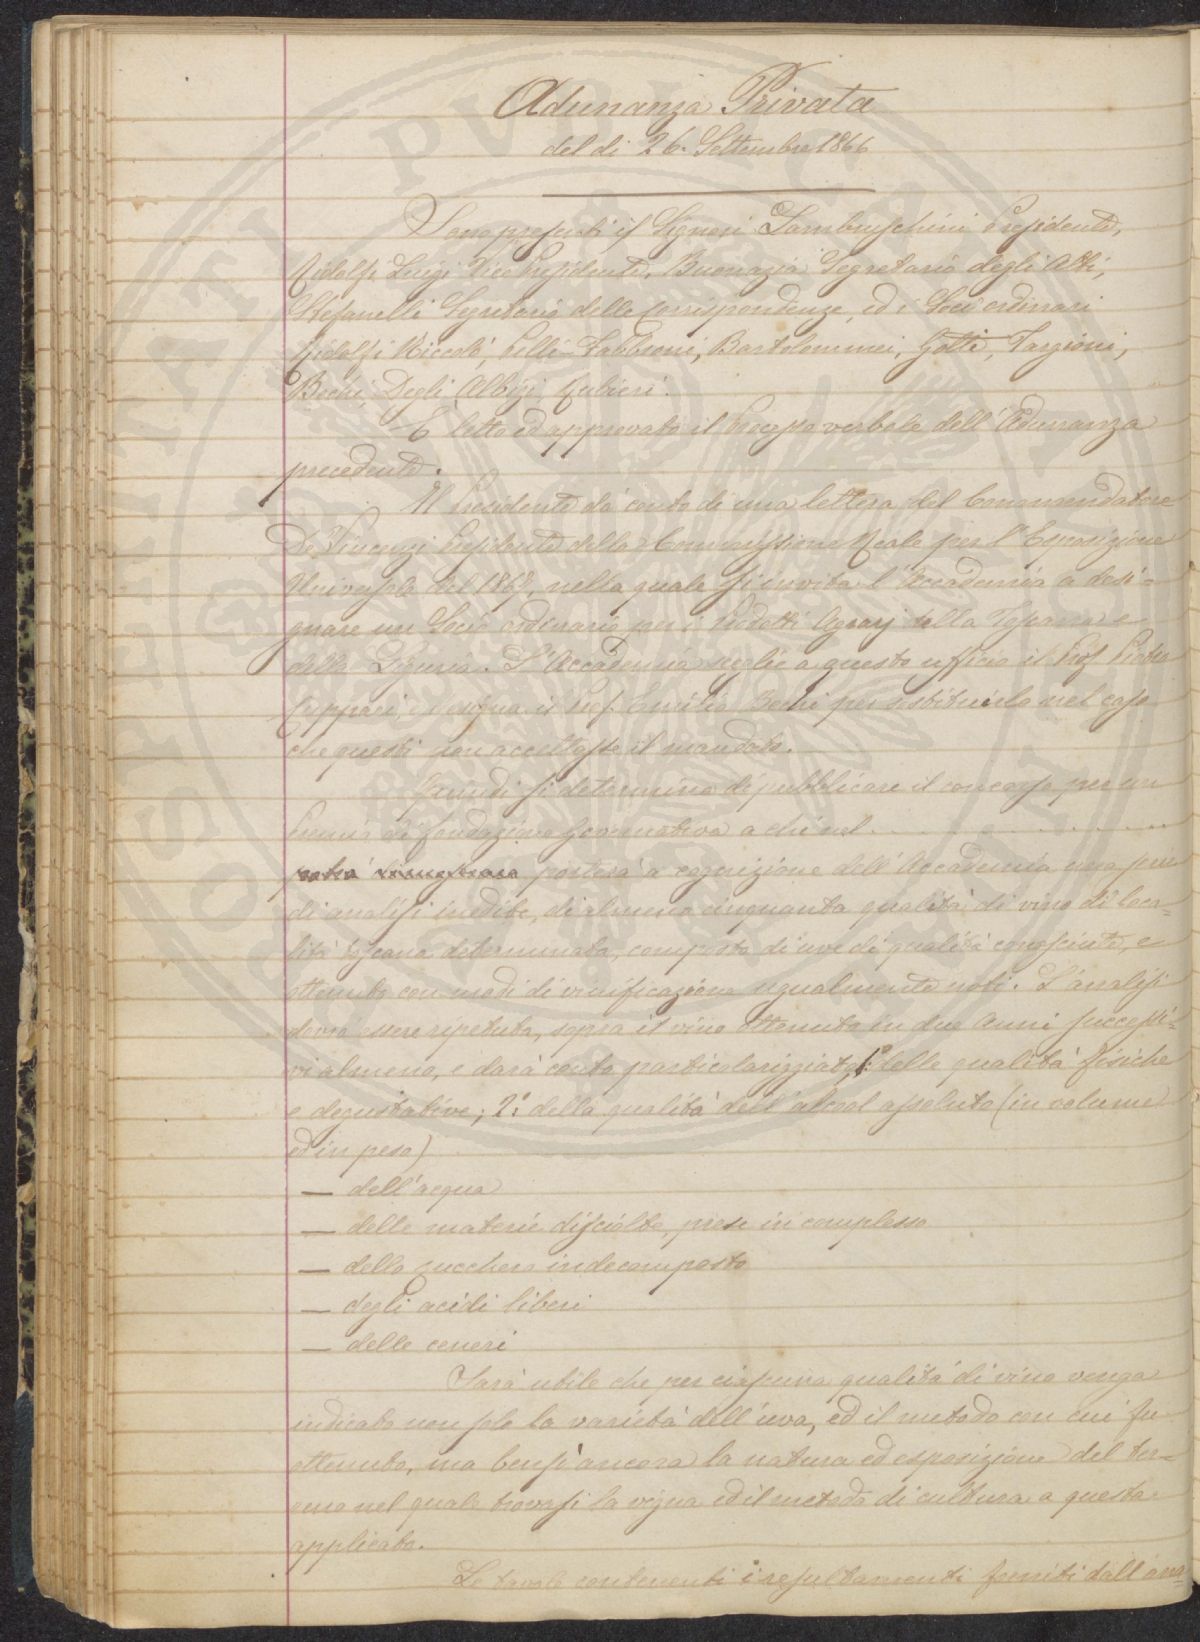 Adunanza Privata
del dì 26. Settembre 1866
Sono presenti i Signori Lambruschini Presidente,
Ridolfi Luigi Vice Presidente, Buonazia Segretario degli Atti,
Stefanelli Segretario delle Corrispondenze, ed i Soci ordinari
Ridolfi Niccolò, Pelli-Fabbroni, Bartolommei, Gotti, Targioni,
Bechi, Degli Albizi,
È letto ed approvato il Processo verbale dell'Adunanza
precedente.
Il Presidente dà conto di una lettera del Commendatore
De Vincenzi Presidente della Commissione Reale per l'Esposizione
Universale del 1867, nella quale si invita l'Accademia a desi=
gnare un Socio ordinario per i Prodotti Agrarj della Toscana e
della Liguria. L'Accademia sceglie a questo ufficio il Prof Pietro
Cuppari, e designa il Prof. Emilio Bechi per sostituirlo nel caso
che questi non accettasse il mandato.
Quindi si determina di pubblicare il concorso per un
Premio di fondazione Governativa a chi nel . . . . . . . . . .
porterà a cognizione dell'Accademia una
di analisi inedite, di almeno cinquanta qualità di vino di loca=
lità toscana determinata, composto di uve di qualità conosciute, e
ottenuto con modi di vinificazione ugualmente noti. L'analisi
dovrà essere ripetuta, sopra il vino ottenuto in due anni successi=
vi almeno, e darà conto particolarizzato, 1º delle qualità fisiche
e degustative; 2º: della qualità dell'alcool assoluto (in volume
ed in peso)
— dell'acqua
— delle materie disciolte, prese in complesso
— dello zucchero indecomposto
— degli acidi liberi
— delle ceneri
Sarà utile che per ciascuna qualità di vino venga
indicato non solo la varietà dell'uva, ed il metodo con cui fu
ottenuto, ma bensì ancora la natura ed esposizione del ter=
reno nel quale trovasi la vigna ed il metodo di cultura a questa
applicato.
Le tavole contenenti i resultamenti forniti dall'ana=